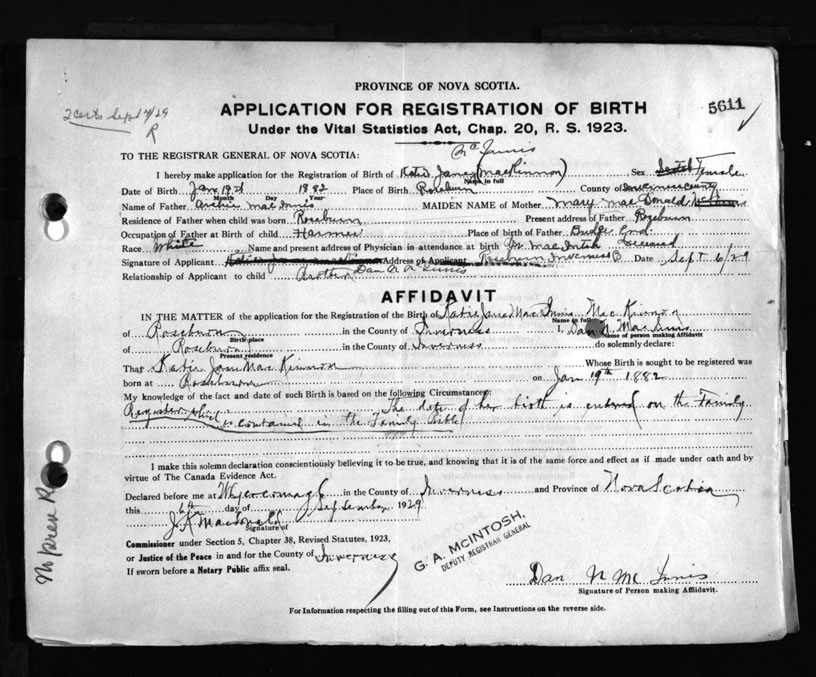 PROVINCE OF NOVA SCOTIA.
2 certs Sept 4/29
R
5611
APPLICATION FOR REGISTRATION OF BIRTH
Under the Vital Statistics Act, Chap. 20, R. S. 1923.
TO THE REGISTRAR GENERAL OF NOVA SCOTIA:
McInnis
I hereby make application for the Registration of Birth of Katie Jane (MacKinnon) Sex Female
Name in full
Date of Birth Jan 19th 1882 Place of Birth Roseburn County of Inverness county
Month Day Year
Name of Father Archie MacInnis MAIDEN NAME of Mother Mary MacDonald
Residence of Father when child was born Roseburn Present address of Father Roseburn
Occupation of Father at Birth of child Farmer Place of birth of Father Bridge End
Race White Name and present address of Physician in attendance at birth Dr. MacIntosh Deceased
Signature of Applicant Address of Applicant Roseburn Inverness Date Sept 6/29
Relationship of Applicant to child Brother Dan N McInnis
AFFIDAVIT
IN THE MATTER of the application for the Registration of the Birth of Katie Jane MacInnis MacKinnon
Name in full
of Roseburn in the County of Inverness I, Dan N. MacInnis
Birth place Name of person making Affidavit
of Roseburn in the County of Inverness do solemnly declare:
Present residence
That Katie Jane MacKinnon Whose Birth is sought to be registered was
born at Roseburn on Jan 19th 1882
My knowledge of the fact and date of such Birth is based on the following Circumstances:
The date of her birth is entered on the Family
Register which is contained in the Family Bible
I make this solemn declaration conscientiously believing it to be true, and knowing that it is of the same force and effect as if made under oath and by
virtue of The Canada Evidence Act.
Declared before me at Whycocomagh in the County of Inverness and Province of Nova Scotia
this 6th day of September 1929
J. A. Macdonald
Signature of
Commissioner under Section 5, Chapter 38, Revised Statutes, 1923,
or Justice of the Peace in and for the County of Inverness
If sworn before a Notary Public affix seal.
G. A. McINTOSH,
DEPUTY REGISTRAR GENERAL
Dan N McInnis
Signature of Person making Affidavit.
For Information respecting the filling out of this Form, see Instructions on the reverse side.
No prev R